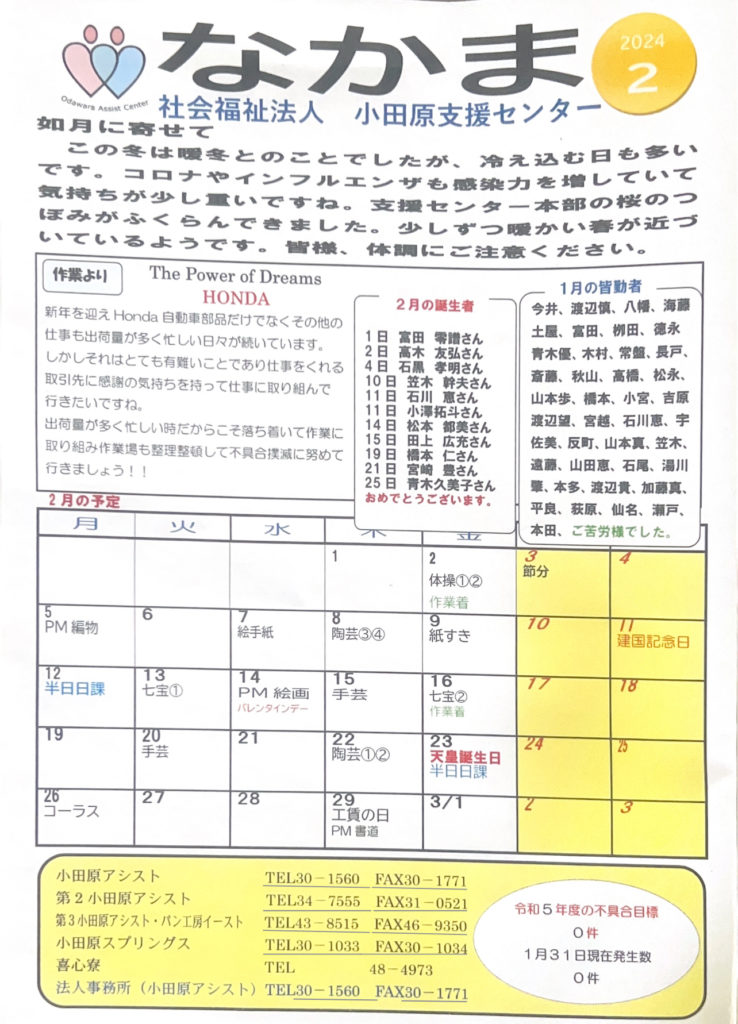 なかま
2024
2
Odawara Assist Center
社会福祉法人　小田原支援センター
如月に寄せて
この冬は暖冬とのことでしたが、冷え込む日も多い
です。コロナやインフルエンザも感染力を増していて
気持ちが少し重いですね。支援センター本部の桜のつ
ぼみがふくらんできました。少しずつ暖かい春が近づ
いているようです。皆様、体調にご注意ください。
作業より
The Power of Dreams
HONDA
新年を迎えHonda自動車部品だけでなくその他の
仕事も出荷量が多く忙しい日々が続いています。
しかしそれはとても有難いことであり仕事をくれる
取引先に感謝の気持ちを持って仕事に取り組んで
行きたいですね。
出荷量が多く忙しい時だからこそ落ち着いて作業に
取り組み作業場も整理整頓して不具合撲滅に努めて
行きましょう！！
２月の誕生者
1日 富田 零譜さん
2日 高木 友弘さん
4日 石黒 孝明さん
10日 笠木 幹夫さん
11日 石川 恵さん
11日 小澤拓斗さん
14日 松本 都美さん
15日 田上 広充さん
19日 橋本 仁さん
21日 宮崎 豊さん
25日 青木久美子さん
おめでとうございます。
１月の皆勤者
今井、渡辺慎、八幡、海藤
土屋、富田、栁田、徳永
青木優、木村、常盤、長戸、
斎藤、秋山、高橋、松永、
山本歩、橋本、小宮、吉原
渡辺望、宮越、石川恵、宇
佐美、反町、山本真、笠木、
遠藤、山田恵、石尾、湯川
肇、本多、渡辺貴、加藤真、
平良、荻原、仙名、瀬戸、
本田、ご苦労様でした。
２月の予定
月 火 水 木 金
1
2
体操①②
作業着
3
節分
4
5
PM編物
6
7
絵手紙
8
陶芸③④
9
紙すき
10
11
建国記念日
12
半日日課
13
七宝①
14
PM 絵画
バレンタインデー
15
手芸
16
七宝②
作業着
17
18
19
20
手芸
21
22
陶芸①②
23
天皇誕生日
半日日課
24
25
26
コーラス
27
28
29
工賃の日
PM書道
3/1
2
3
小田原アシスト TEL30－1560 FAX30－1771
第２小田原アシスト TEL34－7555 FAX31－0521
第３小田原アシスト・パン工房イースト TEL43－8515 FAX46－9350
小田原スプリングス TEL30－1033 FAX30－1034
喜心寮 TEL 48－4973
法人事務所（小田原アシスト）TEL30－1560 FAX30－1771
令和５年度の不具合目標
０件
１月３１日現在発生数
０件